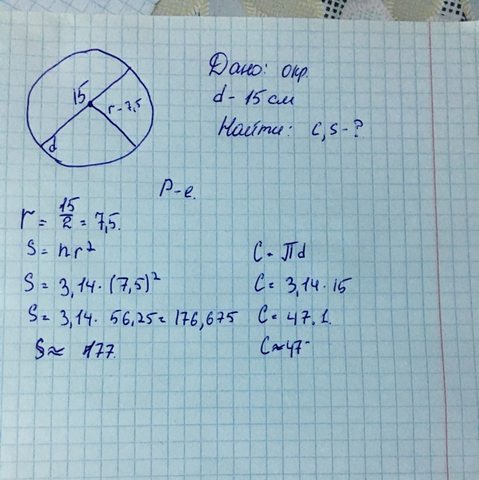 Дано: окр.
d - 15 см
Найти: C, S - ?
15
r - 7,5
d
Р-е.
r = 15/2 = 7,5.
S = πr²
S = 3,14 · (7,5)²
S = 3,14 · 56,25 = 176,675
S ≈ 177.
C = Πd
C = 3,14 · 15
C = 47.1.
C ≈ 47